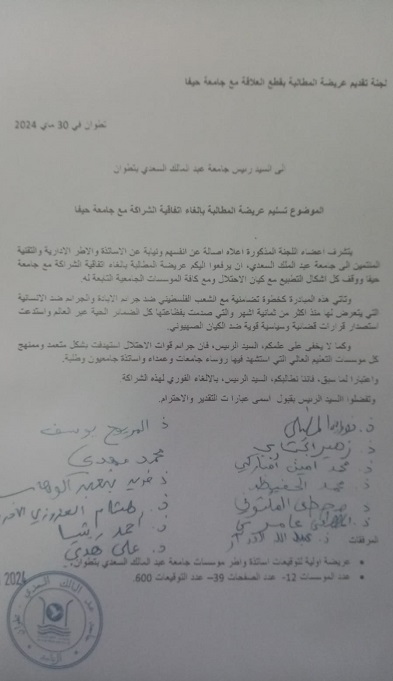 لجنة تقديم عريضة المطالبة بقطع العلاقة مع جامعة حيفا
تطوان في 30 ماي 2024
الى السيد رئيس جامعة عبد المالك السعدي بتطوان
الموضوع تسليم عريضة المطالبة بإلغاء اتفاقية الشراكة مع جامعة حيفا
يتشرف اعضاء اللجنة المذكورة اعلاه اصالة عن انفسهم ونيابة عن الاساتذة والاطر الادارية والتقنية
المنتمين الى جامعة عبد المالك السعدي، ان يرفعوا اليكم عريضة المطالبة بإلغاء اتفاقية الشراكة مع جامعة
حيفا ووقف كل أشكال التطبيع مع كيان الاحتلال ومع كافة المؤسسات الجامعية التابعة له.
وتاتي هذه المبادرة كخطوة تضامنية مع الشعب الفلسطيني ضد جرائم الابادة والجرائم ضد الانسانية
التي يتعرض لها منذ اكثر من ثمانية اشهر والتي صدمت بفظاعتها كل الضمائر الحية عبر العالم واستدعت
استصدار قرارات قضائية وسياسية قوية ضد الكيان الصهيوني.
وكما لا يخفى على علمكم، السيد الرئيس، فان جرائم قوات الاحتلال استهدفت بشكل متعمد وممنهج
كل مؤسسات التعليم العالي التي استشهد فيها رؤساء جامعات وعمداء واساتذة جامعيون وطلبة.
واعتبارا لما سبق، فاننا نطالبكم، السيد الرئيس، بالالغاء الفوري لهذه الشراكة.
وتفضلوا السيد الرئيس بقبول اسمى عبارات التقدير والاحترام.
ذ المريج يوسف
محمد
د. احمد
د. علي هدي
المرفقات
عريضة اولية لتوقيعات اساتذة واطر مؤسسات جامعة عبد المالك السعدي بتطوان.
عدد الموسسات 12- عدد الصفحات 39- عدد التوقيعات 600.
2024